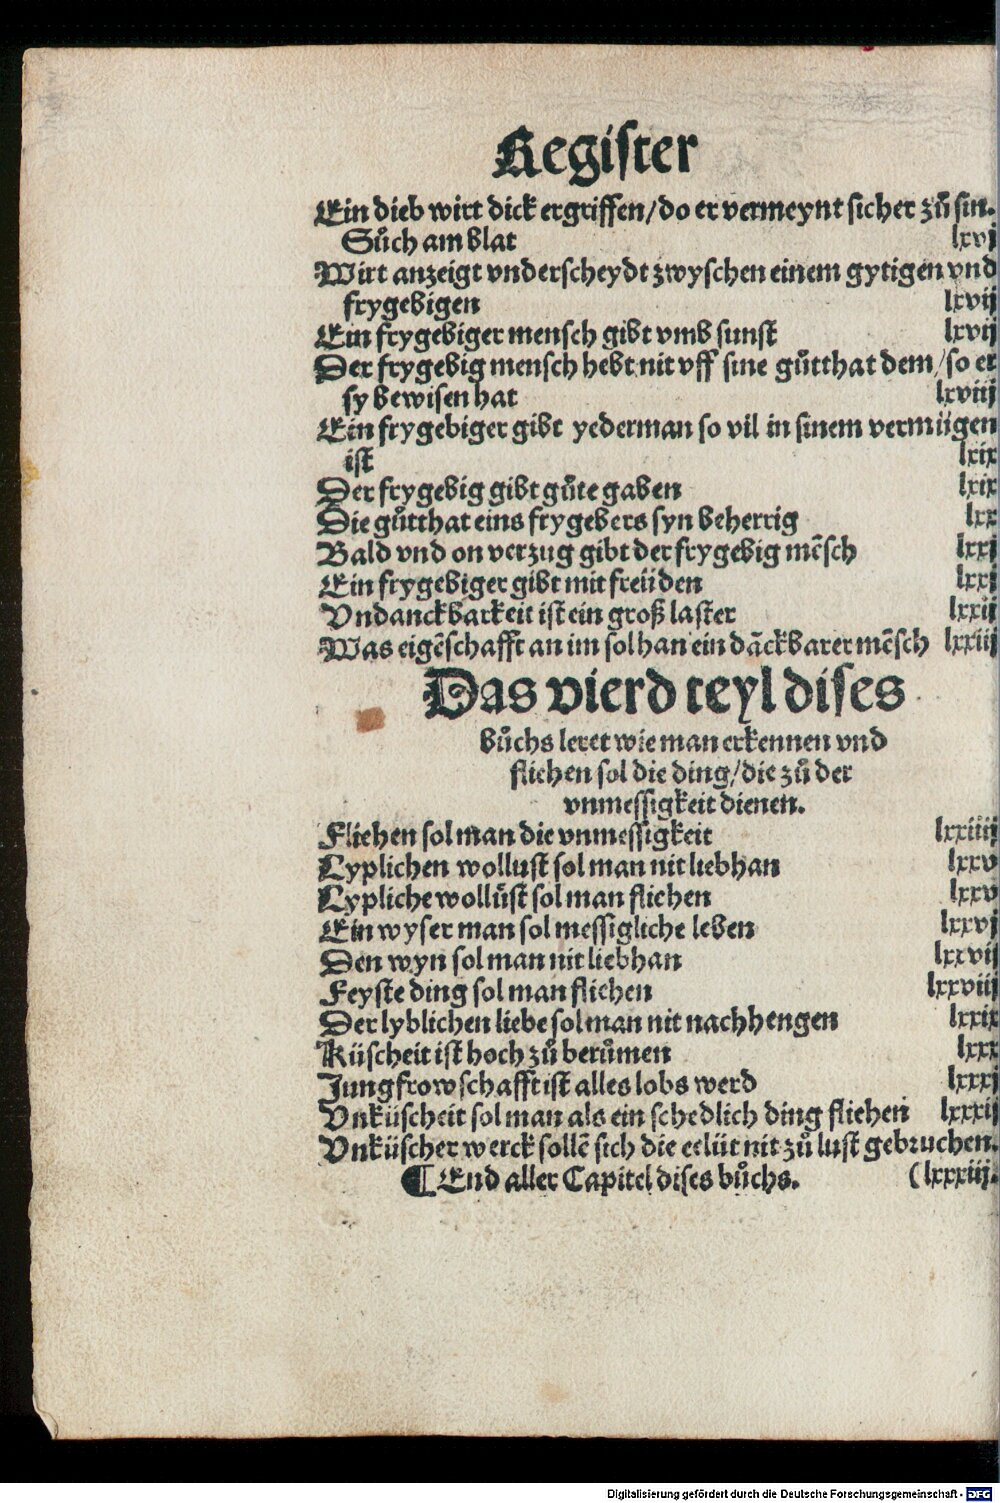 Register
Ein dieb wirt dick ergriffen/do er vermeynt sicher zů sin.
Sůch am blat lxvj
Wirt anzeigt vnderscheydt zwyschen einem gytigen vnd
frygebigen lxvij
Ein frygebiger mensch gibt vmb sunst lxvij
Der frygebig mensch hebt nit vff sine gůtthat dem/so er
sy bewisen hat lxviij
Ein frygebiger gibt yederman so vil in sinem vermügen
ist lxix
Der frygebig gibt gůte gaben lxix
Die gůtthat eins frygebers syn beherrig lxx
Bald vnd on verzug gibt der frygebig mēsch lxxj
Ein frygebiger gibt mit freüden lxxj
Vndanckbarkeit ist ein groß laster lxxij
Was eigēschafft an im sol han ein dāckbarer mēsch lxxiij
Das vierd teyl dises
bůchs leret wie man erkennen vnd
fliehen sol die ding/die zů der
vnmessigkeit dienen.
Fliehen sol man die vnmessigkeit lxxiiij
Lyplichen wollust sol man nit liebhan lxxv
Lypliche wollůst sol man fliehen lxxv
Ein wyser man sol messigliche leben lxxvj
Den wyn sol man nit liebhan lxxvij
Feyste ding sol man fliehen lxxviij
Der lyblichen liebe sol man nit nachhengen lxxix
Küscheit ist hoch zů berůmen lxxx
Jungfrowschafft ist alles lobs werd lxxxj
Vnküscheit sol man als ein schedlich ding fliehen lxxxij
Vnküscher werck sollē sich die eelüt nit zů lust gebruchen.
¶ End aller Capitel dises bůchs. (lxxxiij.
Digitalisierung gefördert durch die Deutsche Forschungsgemeinschaft - DFG